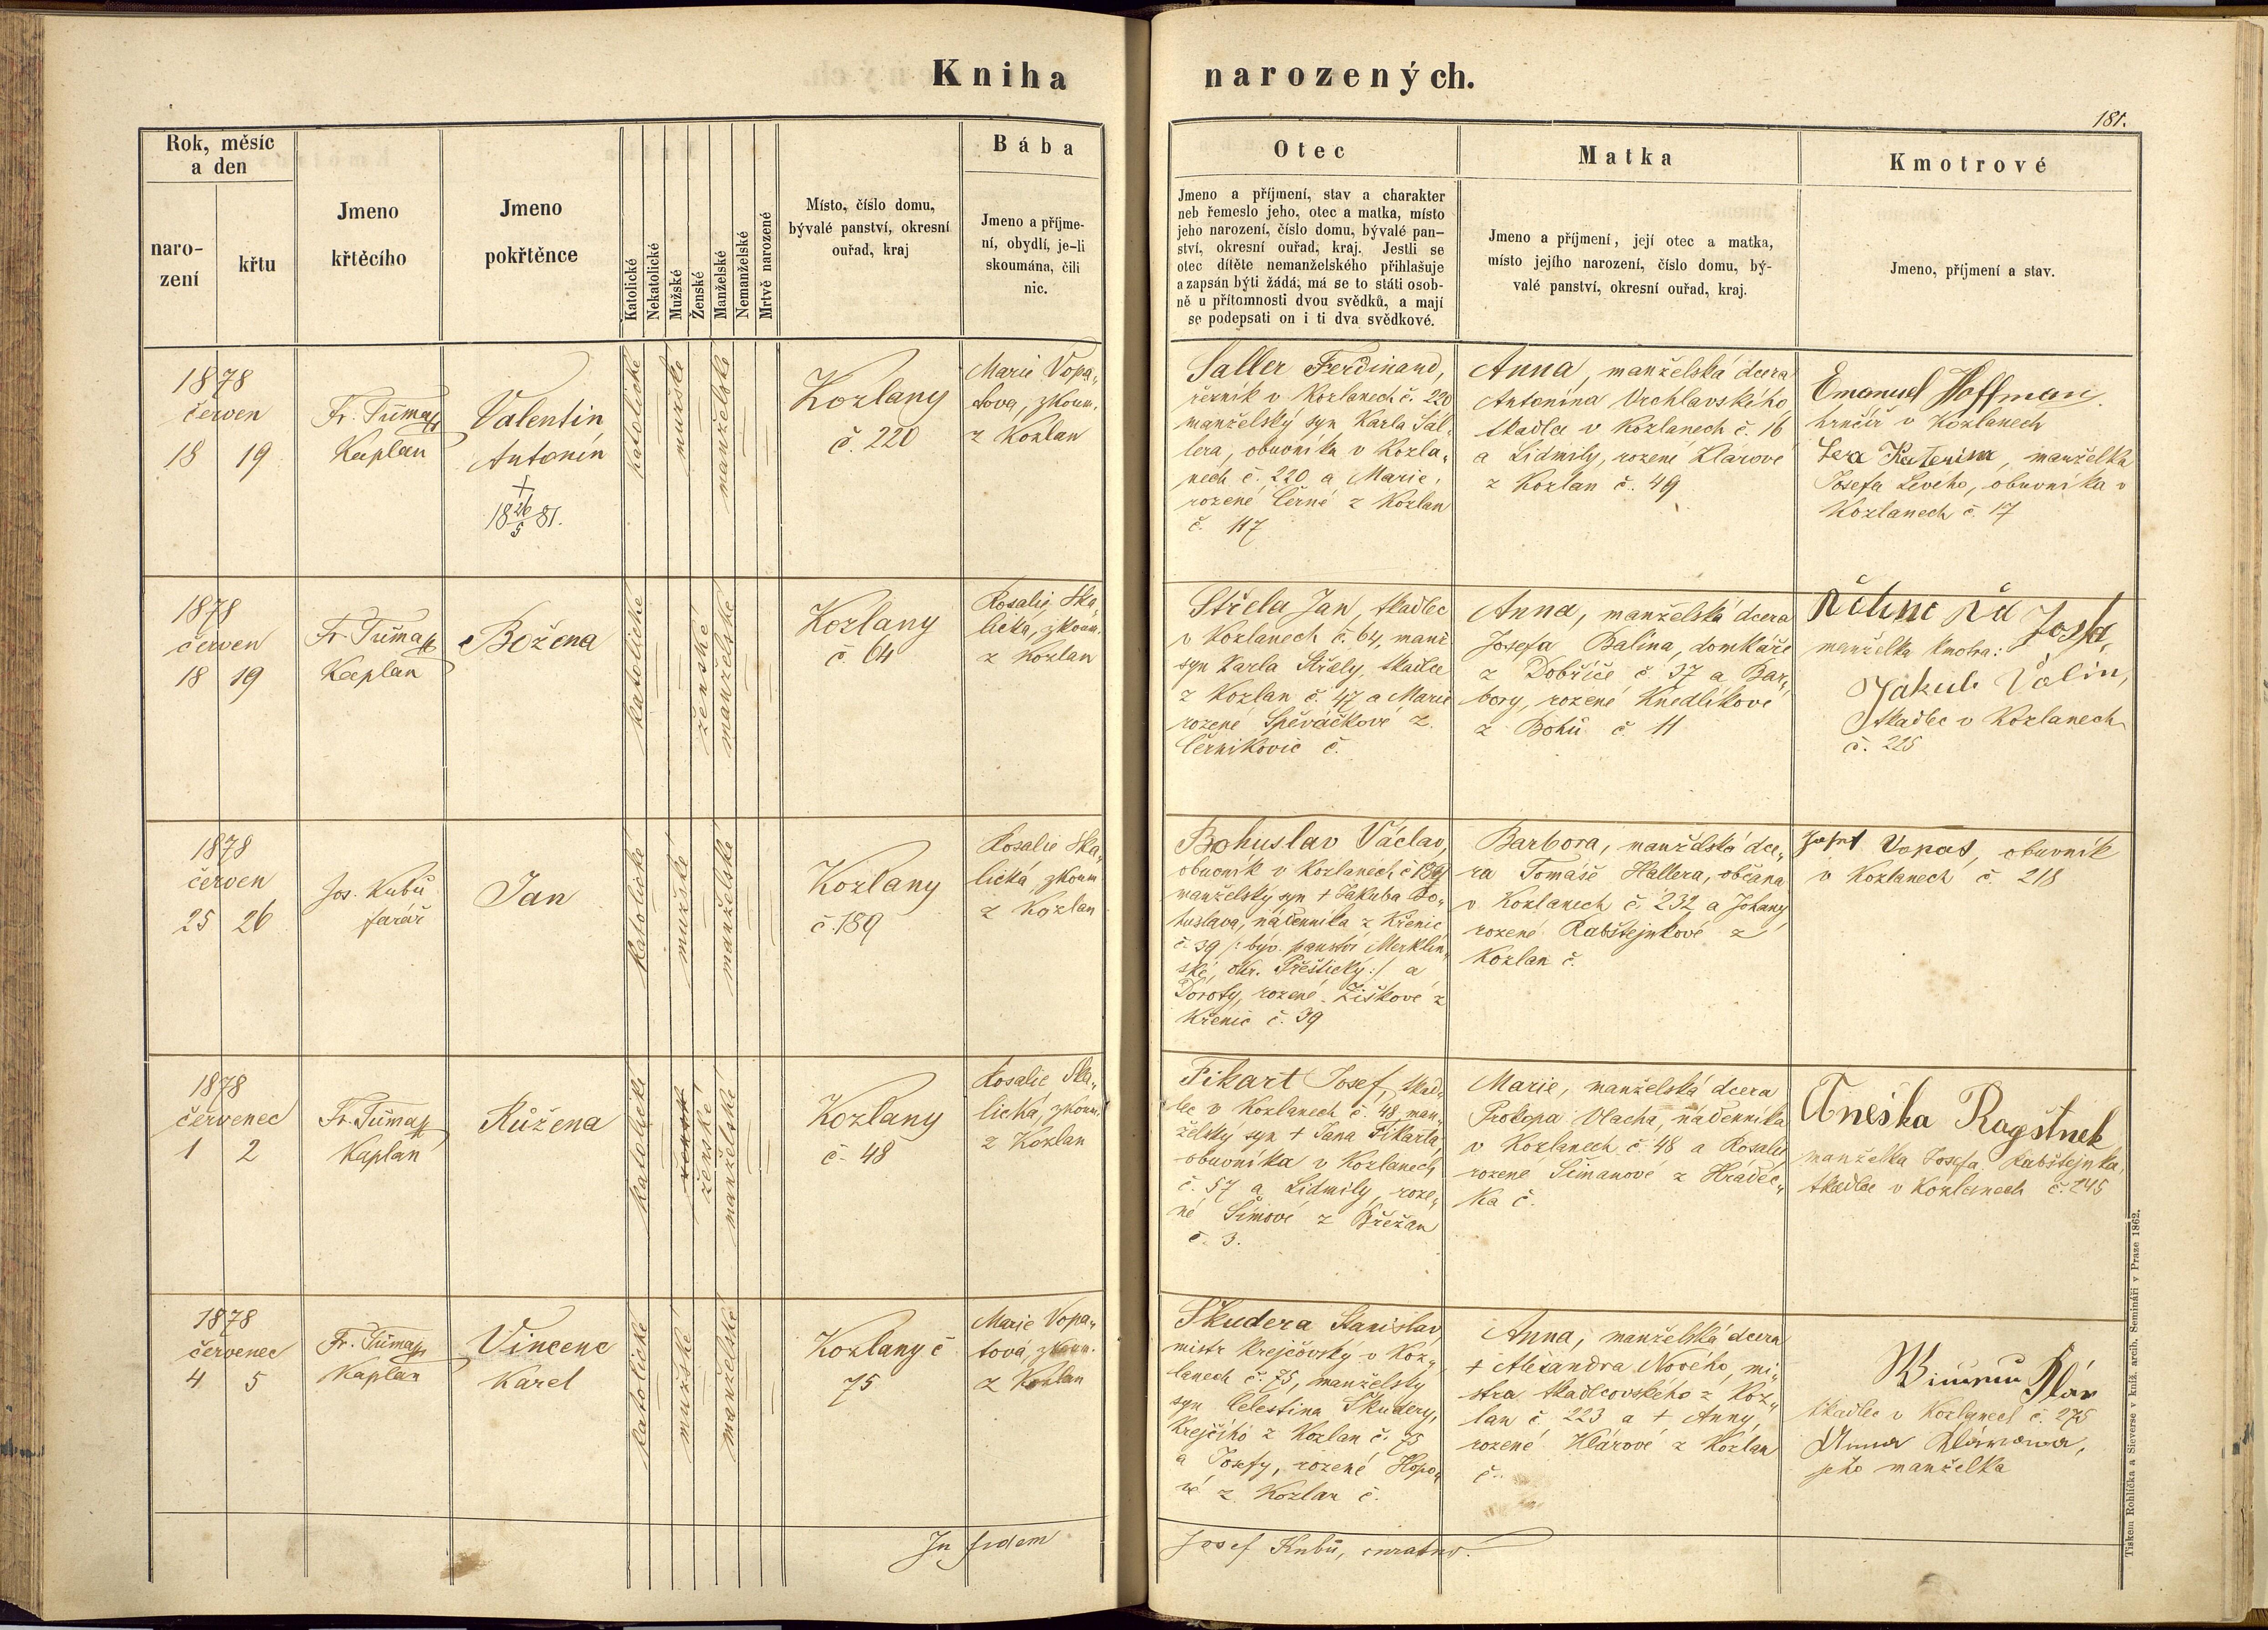 Kniha narozených.
181.
Rok, měsíc
a den
naro-
zení
křtu
Jmeno
křtěcího
Jmeno
pokřtěnce
Katolické
Nekatolické
Mužské
Ženské
Manželské
Nemanželské
Mrtvě narozené
Místo, číslo domu,
bývalé panství, okresní
ouřad, kraj
Bába
Jmeno a příjme-
ní, obydlí, je-li
skoumána, čili
nic.
Otec
Jmeno a příjmení, stav a charakter
neb řemeslo jeho, otec a matka, místo
jeho narození, číslo domu, bývalé pan-
ství, okresní ouřad, kraj. Jestli se
otec dítěte nemanželského přihlašuje
a zapsán býti žádá, má se to státi osob-
ně u přítomnosti dvou svědků, a mají
se podepsati on i ti dva svědkové.
Matka
Jmeno a příjmení, její otec a matka,
místo jejího narození, číslo domu, bý-
valé panství, okresní ouřad, kraj.
Kmotrové
Jmeno, příjmení a stav.
1878
červen
18 19
Fr. Tůma
Kaplan
Valentin
Antonín
†
18 26/5 81.
katolické
mužské
manželské
Kozlany
č. 220
Marie Vopa„
tova, zkoum.
z Kozlan
Saller Ferdinand,
řezník v Kozlanech č. 220
manželský syn Karla Sal„
lera, obuvníka v Kozla„
nech č. 220 a Marie,
rozené Černé z Kozlan
č. 117
Anna, manželská dcera
Antonína Vrchlavského
tkadlce v Kozlanech č. 16
a Lidmily, rozené Klarové
z Kozlan č. 49
Emanuel Hoffman,
hrnčíř v Kozlanech
Katerina, manželka
Josefa Levého, obuvníka v
Kozlanech č. 17
1878
červen
18 19
Fr. Tůma
Kaplan
Božena
katolické
ženské
manželské
Kozlany
č. 64
Rosalie Ska„
lická, zkoum.
z Kozlan
Střela Jan, tkadlec
v Kozlanech č. 64, manž.
syn Karla Střely, tkadlce
z Kozlan č. 47 a Marie
rozené Spěváčkové z
Černikovic č.
Anna, manželská dcera
Josefa Balína, domkáře
z Dobříče č. 37 a Bar„
bory, rozené Knedlíkové
z Bohů č. 11
Josfa,
manželka kmotra:
Jakub Volin,
tkadlec v Kozlanech
č. 225
1878
červen
25 26
Jos. Kubů
farář
Jan
katolické
mužské
manželské
Kozlany
č. 189
Rosalie Ska„
lická, zkoum
z Kozlan
Bohuslav Václav,
obuvník v Kozlanech č 189
manželský syn † Jakuba Bo„
huslava, nádenníka z Křenic
č. 39 /: býv. panství Merklín„
ské, okr. Přeštický :/ a
Doroty, rozené Žiškové z
Křenic č. 39
Barbora, manželská dce„
ra Tomáše Hallera, občana
v Kozlanech č. 232 a Johany
rozené Rabštejnkové z
Kozlan č.
Josef Vopat, obuvník
v Kozlanech č. 218
1878
červenec
1 2
Fr. Tůma
Kaplan
Růžena
katolické
ženské
manželské
Kozlany
č. 48
Rosalie Ska„
lická, zkoum.
z Kozlan
Fikart Josef, tkad„
lec v Kozlanech č. 48 man„
želský syn † Jana Fikarta,
obuvníka v Kozlanech
č. 57 a Lidmily, roze„
né Šímové z Břežan
č. 3.
Marie, manželská dcera
Prokopa Vlacha, nádenníka
v Kozlanech č. 48 a Rosalie
rozené Šimanové z Hradec„
ka č.
Aneška Ragštnek
manželka Josefa Rabštejnka,
tkadlce v Kozlanech č. 245
1878
červenec
4 5
Fr. Tůma
Kaplan
Vincenc
Karel
katolické
mužské
manželské
Kozlany č
75
Marie Vopa„
tová, zkoum.
z Kozlan
Škudera Stanislav
mistr krejčovský v Koz„
lanech č. 75, manželský
syn Celestina Škudery,
krejčího z Kozlan č. 75
a Josefy, rozené Hopo„
vé z Kozlan č.
Anna, manželská dcera
† Alexandra Nového, mi„
stra tkadlcovského z Koz„
lan č. 223 a † Anny,
rozené Klárové z Kozlan
č.
Klár
tkadlec v Kozlanech č. 275
Anna Klárowa,
jeho manželka
In fidem
Josef Kubů, curatus.
Tiskem Rohlíčka a Sieverse v kníž. arcib. Semináři v Praze 1862.